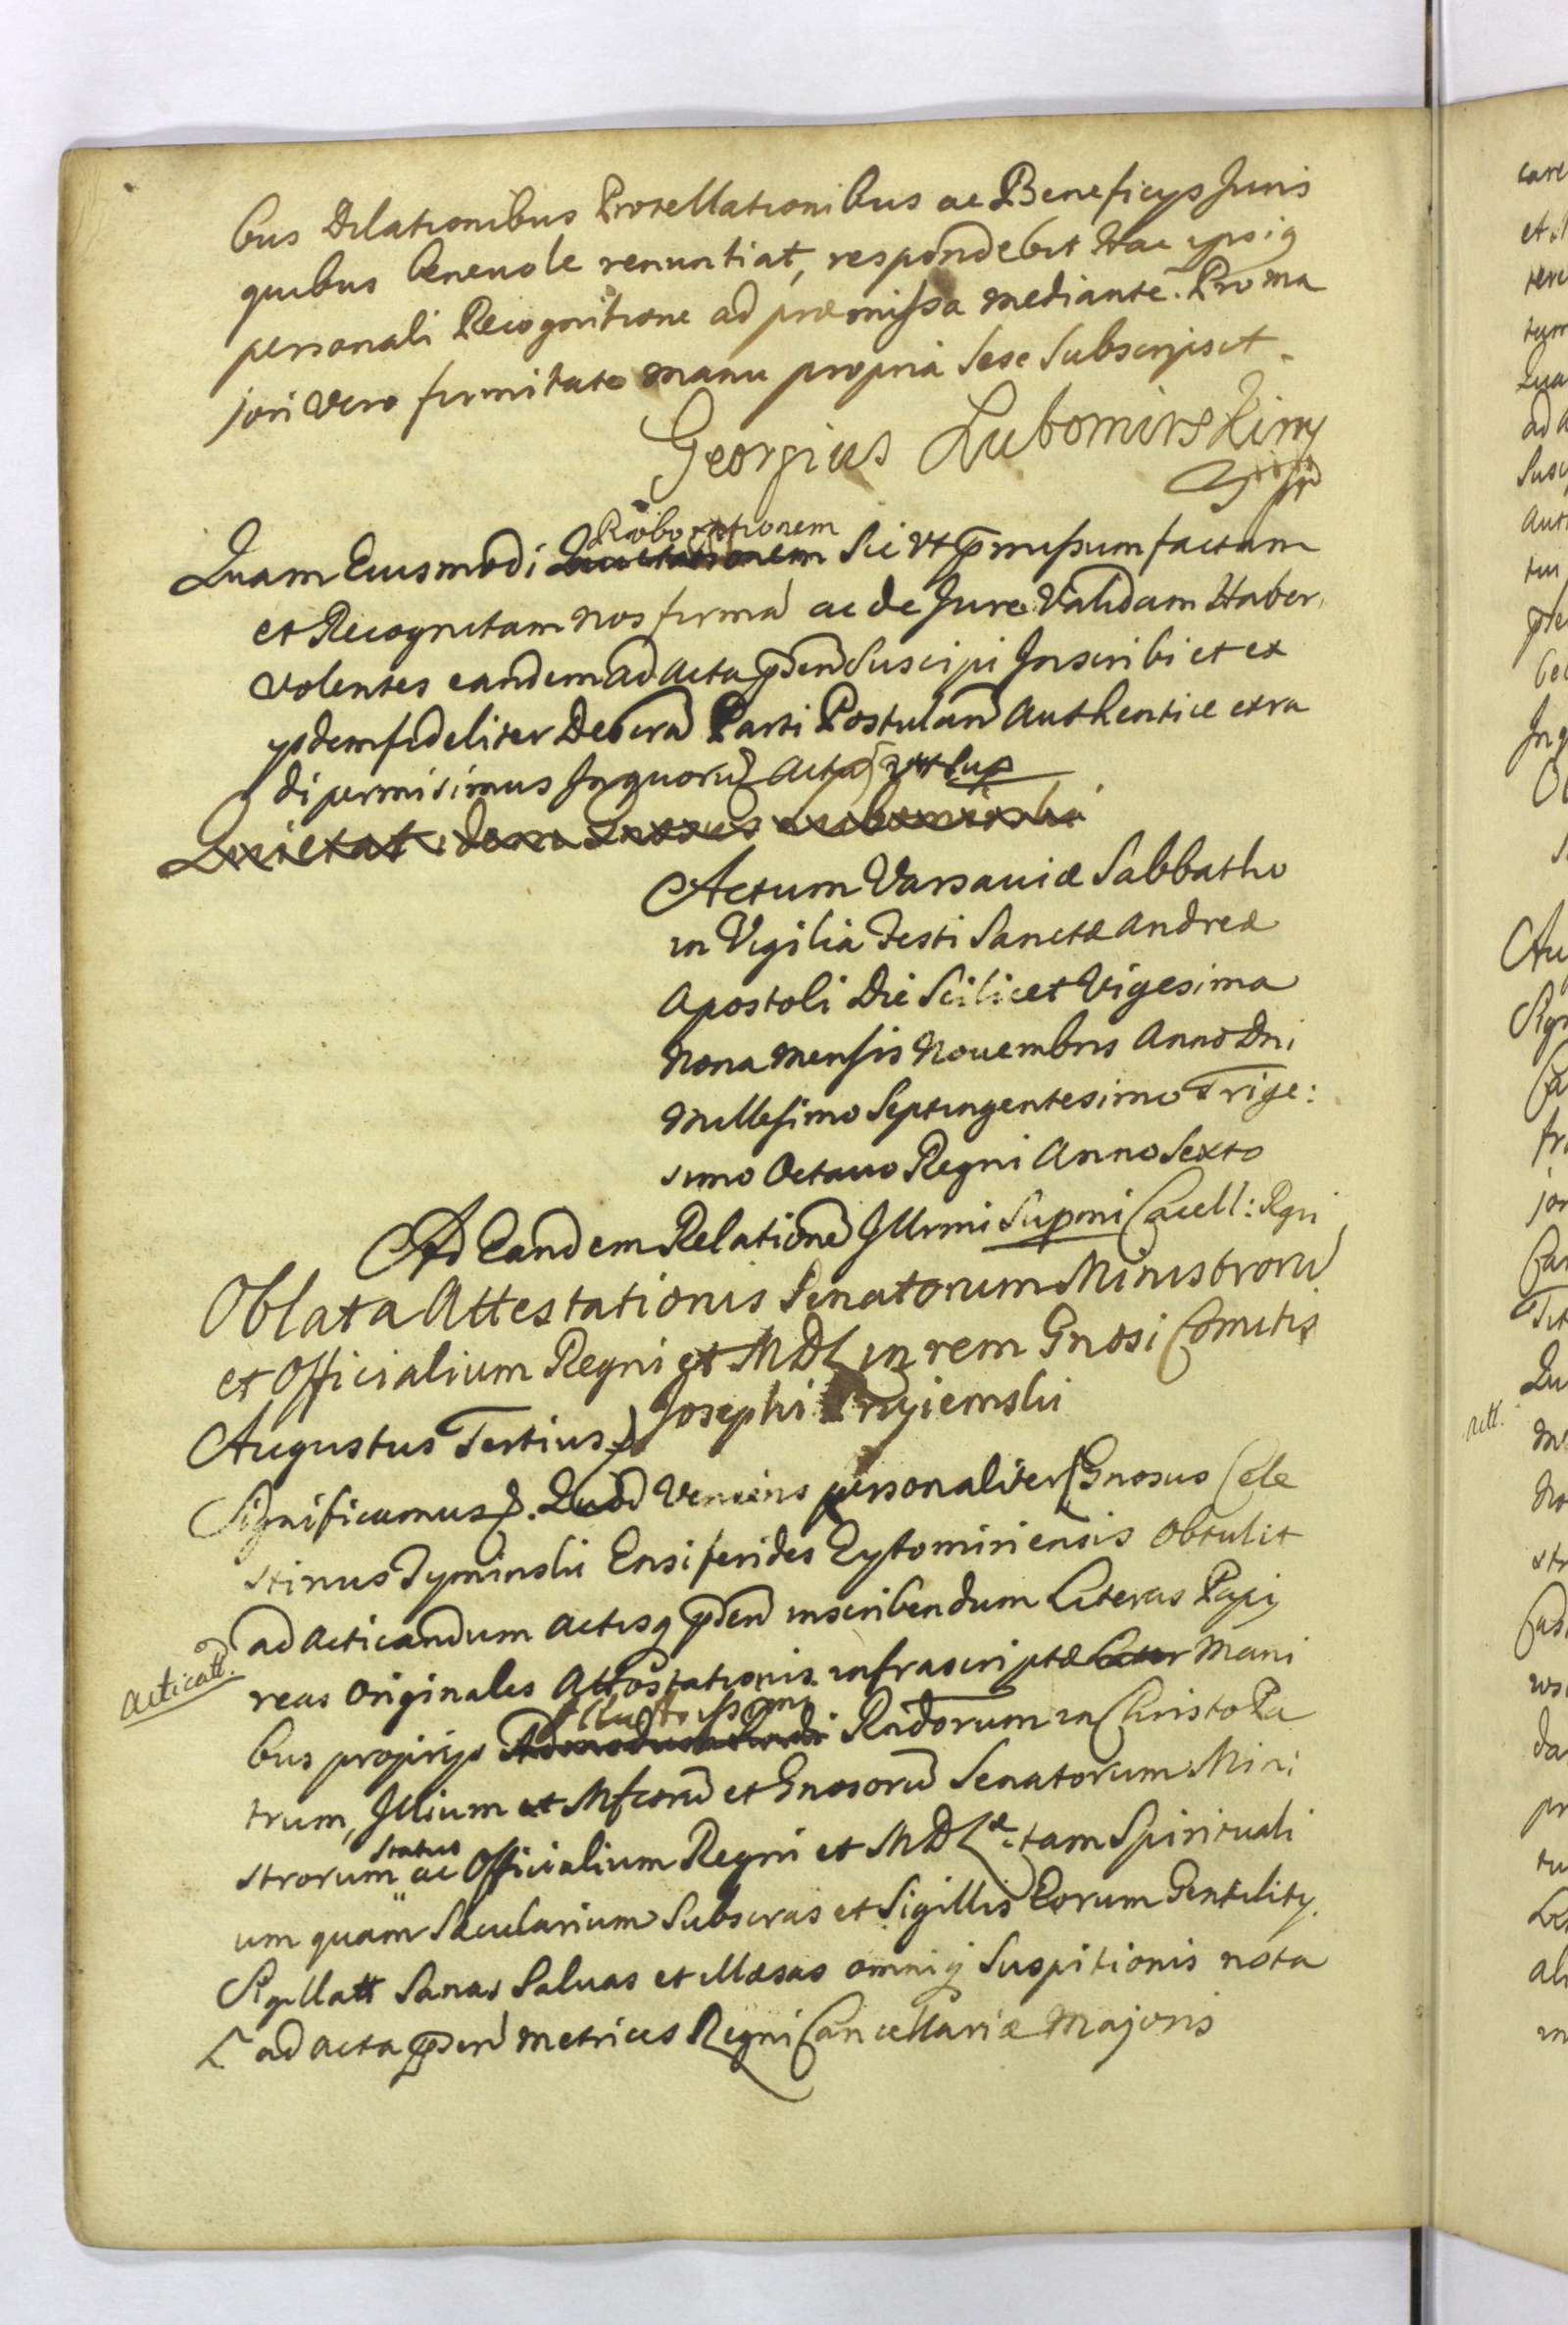 bus Dilationibus Protellationibus ac Beneficys Juris
quibus beneuole renuntiat, respondebit Hac ypsiq
personali Recognitione ad præmissa mediante. Pro ma
jori Vero firmitate manu propria Sese Subscripsit.
Georgius Lubomirski mp
Roborationem
Quam Eiusmodi Quietationem Sic Vt pmissum factam
et Recognitam nos firma ac de Jure Validam Haber
volentes eandem ad Acta pden Suscipi Inscribi et ex
ysdem fideliter Descra Parti Postulan Authentice extra
di permisimus Inquoru Acta Vt Sup
Actum Varsauiæ Sabbatho
in Vigilia Festi Sanctæ Andreæ
Apostoli Die Scilicet Vigesima
Nona Mensis Nouembris Anno Dni
Millesimo Septingentesimo Trige:
simo Octauo Regni Anno Sexto
Ad Eandem Relatione Illrmi Supmi Cacell: Rgni
Oblata Attestationis Senatorum Ministroru
et Officialium Regni et MDL in rem Gnosi Comitis
Josephi Przyiemski
Augustus Tertius
Significamus. Quod Veniens personaliter Gnosus Cele
stinus Tyminski Ensiferides Zytomiriensis obtulit
ad Acticandum Actisq pden inscribendum Literas Papi
acticatt.
reas Originales Attestationis infrascriptæ Mani
Illustrissm
bus proprys Rndorum in Christo Pa
trum, Illium et Mfcoru et Gnosoru Senatorum Mini
status
strorum ac Officialium Regni et MDLæ: tam Spirituali
um quam Sæcularium Subscras et Sigillis Eorum Gentility.
Sigillatt Sanas Saluas et Illæsas omniq Suspitionis nota
L ad acta pden metrices Regni Cancellariæ Majoris